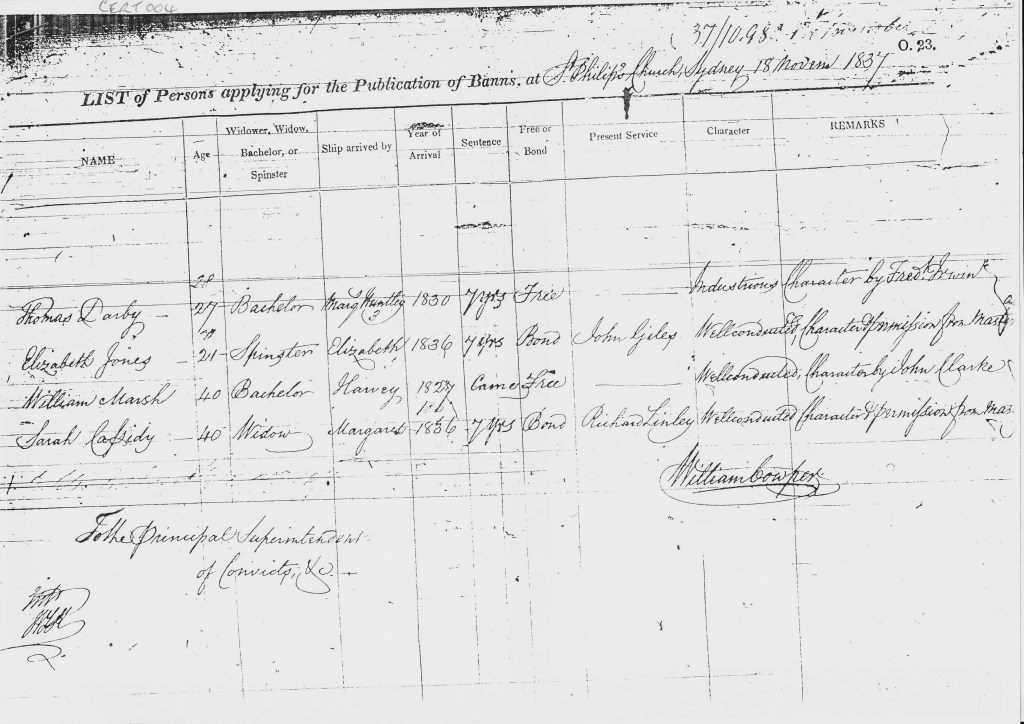 CERT 004
37/10.98
O. 23.
LIST of Persons applying for the Publication of Banns, at St. Philip's Church, Sydney 18 Novem 1837
NAME Age Widower, Widow, Bachelor, or Spinster Ship arrived by Year of Arrival Sentence Free or Bond Present Service Character REMARKS
28
Thomas Darby — 27 Bachelor Marq Huntley 1830 7 Yrs Free Industrious Character by Fredk. Irwin
Elizabeth Jones — 21 Spinster Elizabeth 1836 7 Yrs Bond John Giles Wellconducted, Character & permission from Master
William Marsh 40 Bachelor Harvey 1827 Came Free Wellconducted, Character by John Clarke
Sarah Cassidy — 40 Widow Margaret 1836 7 Yrs Bond Richard Linley Wellconducted Character & permission from Mas
William Cowper
To the Principal Superintendent
of Convicts, &c. —